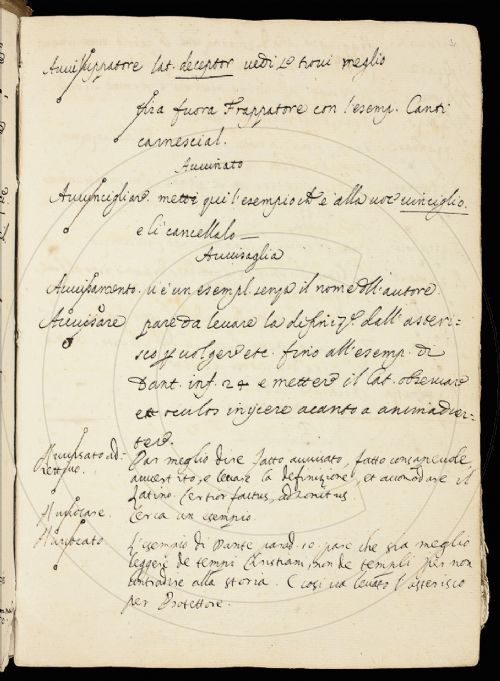 Avviluppatore lat. deceptor vedi se trovi meglio
fra fuora Frappatore con l'esemp. Canti
carnescial.
Avvinato
Avvincigliare. metti qui l'esempio ch'è alla voce vinciglio.
e lì cancellalo
Avvisaglia
Avvisamento. v'è un esempl. senza il nome dell'autore.
Avvisare pare da levare la definiz.e dall'asteri-
sco volgere etc. fino all'esemp. di
Dant. inf. 24 e mettere il lat. observare
et oculos injicere acanto a animadver-
tere.
Avvisato ad- Par meglio dire fatto avvisato, fatto consapevole,
iettivo. avvertito, e levare la definizione, et accomodare il
latino. Certior factus, admonitus.
Avvocare. Cerca un esempio.
Avvocato L'esempio di Dante parad. 10. pare che stia meglio
leggere de tempi Christiani, non de templi per non
contradire alla storia. E così va levato l'asterisco
per Protettore.